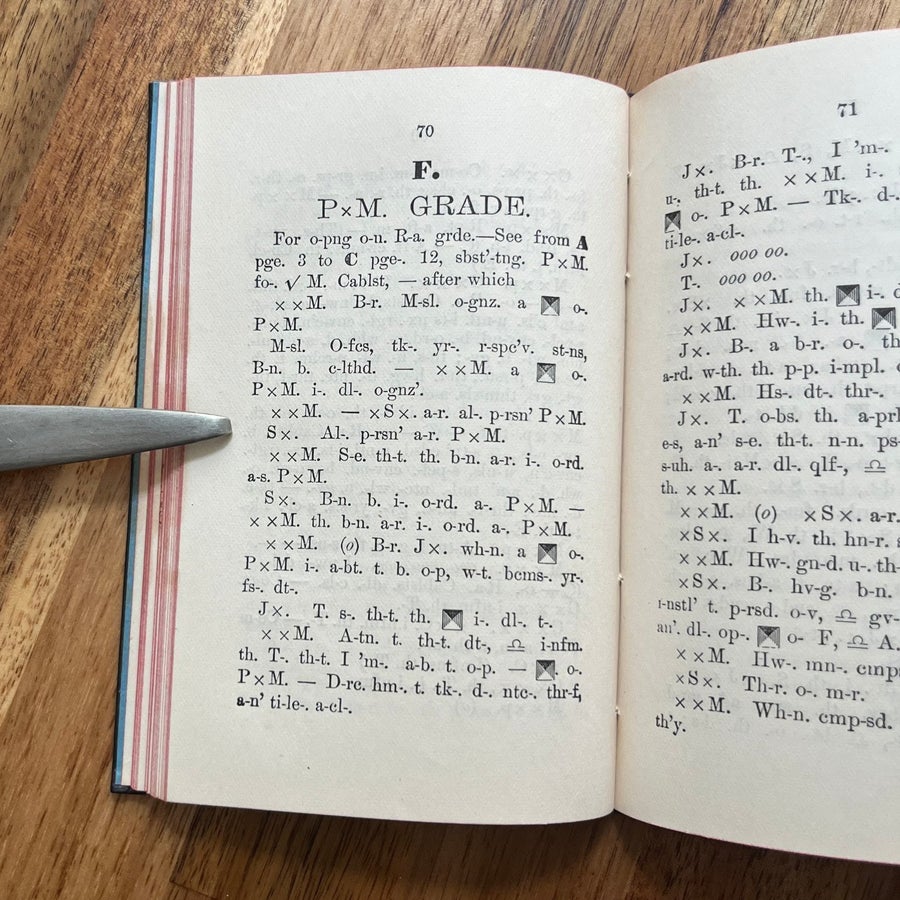 70
F.
P×M. GRADE.
For o-png o-n. R-a. grde.—See from A
pge. 3 to C pge-. 12, sbst'-tng. P×M.
fo-. √ M. Cablst, — after which
××M. B-r. M-sl. o-gnz. a o-.
P×M.
M-sl. O-fcs, tk-. yr-. r-spc'v. st-ns,
B-n. b. c-lthd. — ××M. a o-.
P×M. i-. dl-. o-gnz'.
××M. — ×S×. a-r. al-. p-rsn' P×M.
S×. Al-. p-rsn' a-r. P×M.
××M. S-e. th-t. th. b-n. a-r. i-. o-rd.
a-s. P×M.
S×. B-n. b. i-. o-rd. a-. P×M. —
××M. th. b-n. a-r. i-. o-rd. a-. P×M.
××M. (o) B-r. J×. wh-n. a o-.
P×M. i-. a-bt. t. b. o-p, w-t. bcms-. yr-.
fs-. dt-.
J×. T. s-. th-t. th. i-. dl-. t-.
××M. A-tn. t. th-t. dt-, ♎ i-nfm.
th. T-. th-t. I 'm-. a-b. t. o-p. — o-.
P×M. — D-rc. hm-. t. tk-. d-. ntc-. thr-f,
a-n' ti-le-. a-cl-.
71
J×. B-r. T-., I 'm-.
u-. th-t. th. ××M. i-.
o-. P×M. — Tk-. d-.
ti-le-. a-cl-.
J×. 000 00.
T-. 000 00.
J×. ××M. th. i-.
××M. Hw-. i-. th.
J×. B-. a b-r. o-. th
a-rd. w-th. th. p-p. i-mpl.
××M. Hs-. dt-. thr-.
J×. T. o-bs. th. a-prl
e-s, a-n' s-e. th-t. n-n. ps-
s-uh. a-. a-r. dl-. qlf-, ♎
th. ××M.
××M. (o) ×S×. a-r.
×S×. I h-v. th. hn-r. s
××M. Hw-. gn-d. u-. th-
×S×. B-. hv-g. b-n.
i-nstl' t. p-rsd. o-v, ♎ gv-
an'. dl-. op-. o- F, ♎ A.
××M. Hw-. mn-. cmps
×S×. Th-r. o-. m-r.
××M. Wh-n. cmp-sd.
th'y.